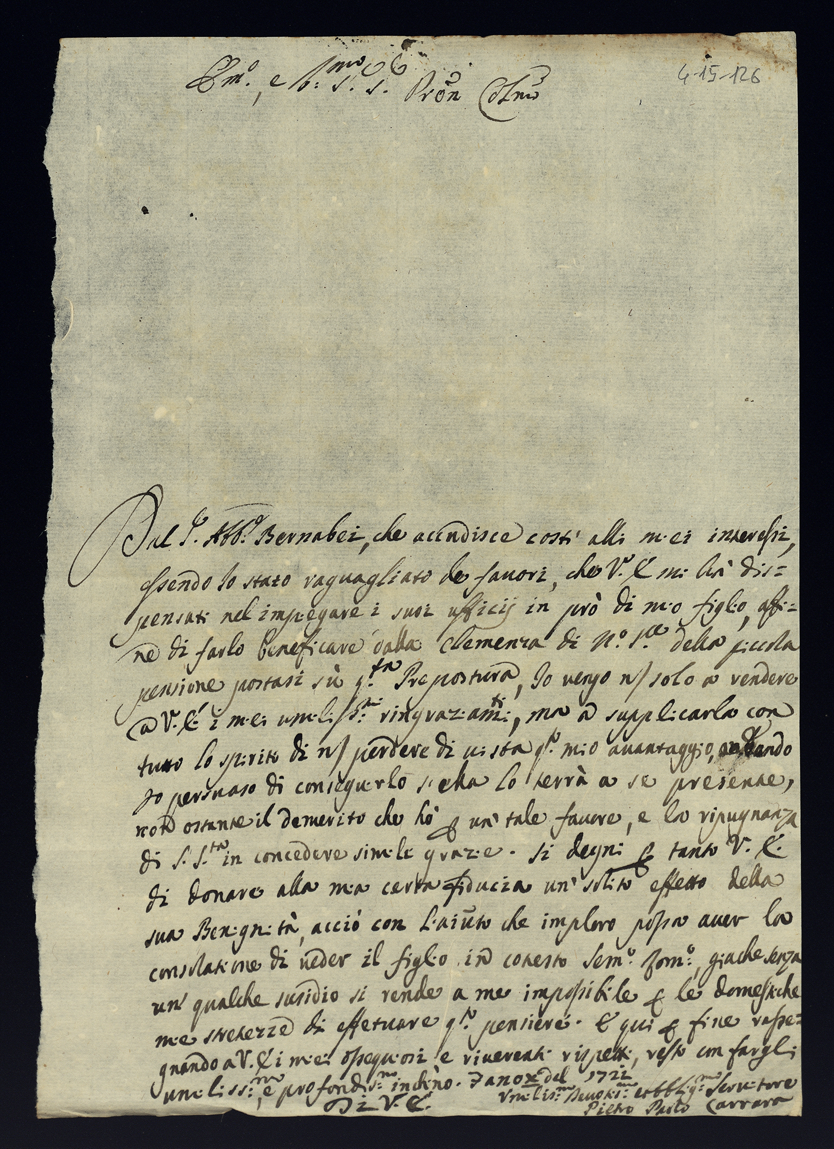 Em.º, e R.mo S.r S.r Pron Colmo
4-15-126
Dal S. Abb.e Bernabei, che accudisce costì alli miei interessi,
essendo io stato raguagliato de favori, che V.E. mi hà dis=
pensati nel impiegare i suoi ufficij in prò di mio figlio, affi=
ne di farlo beneficare dalla clemenza di N.º S.re della piccola
pensione postasi sù q.sta Prepostura, Io vengo n/ solo a rendere
a V.E. i miei umiliss.mi ringraziam.ti, ma à supplicarla con
tutto lo spirito di n/ perdere di vista q.to mio avantaggio,
Io persuaso di conseguirlo se ella lo terrà a se presente,
non ostante il demerito che hò p un' tale favore, e la ripugnanza
di S. S.tà in concedere simili grazie. Si degni p tanto V. E.
di donare alla mia certa fiducia un' solito effetto della
sua Benignità, acciò con l'aiuto che imploro possa aver la
consolatione di veder il figlio in cotesto Sem.º Rom.º, giache senza
un' qualche susidio si rende a me impossibile p le domestiche
mie stretezze di effetuare q.to pensiere. E qui p fine rasse=
gnando a V.E. i miei ossequiosi e riverenti rispetti, resto con fargli
umilissi.mo, e profondiss.mo inchino. Fano del 1722
Di V.E. Umiliss.mo Devotis.mo et Obblig.mo Servitore
Pietro Paolo Carrara